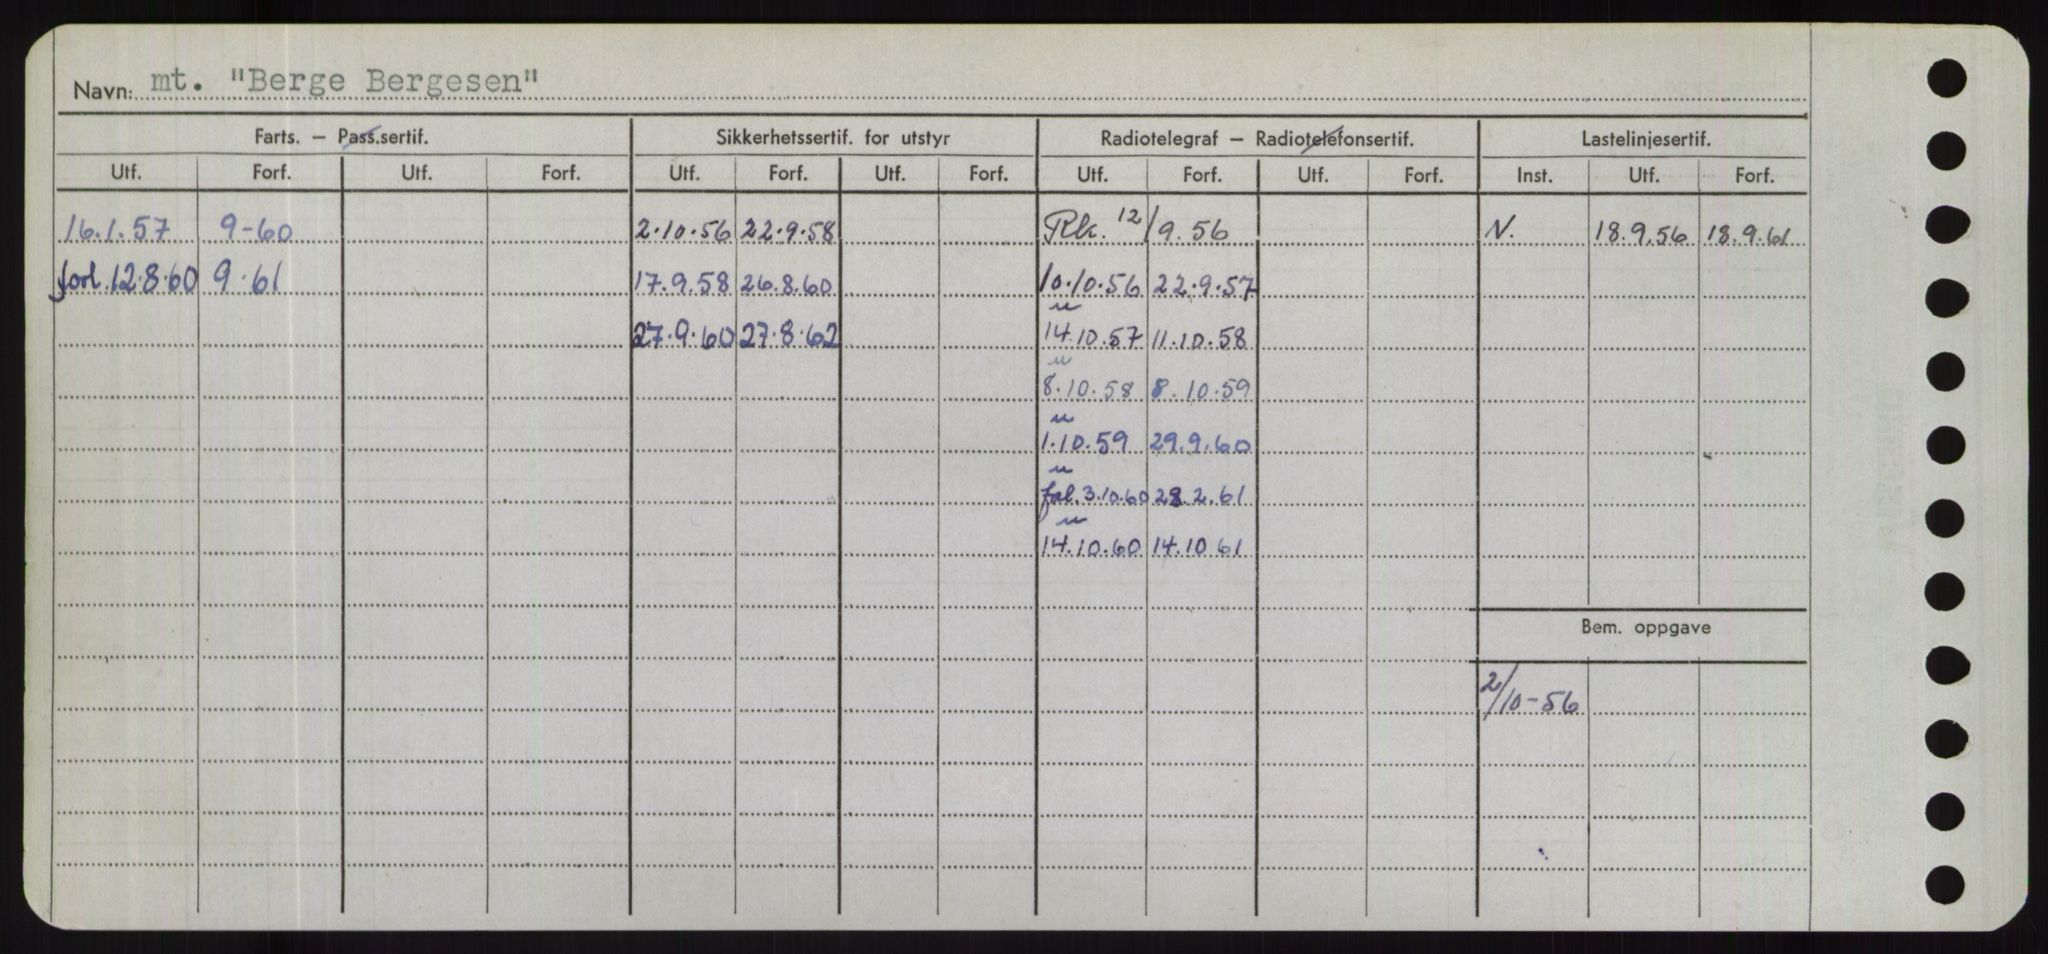 Navn: mt. "Berge Bergesen"
Farts. – Pass.sertif. Sikkerhetssertif. for utstyr Radiotelegraf – Radiotelefonsertif. Lastelinjesertif.
Utf. Forf. Utf. Forf. Utf. Forf. Utf. Forf. Utf. Forf. Utf. Forf. Inst. Utf. Forf.
16.1.57 9-60 2.10.56 22.9.58 Rk. 12/9.56 N. 18.9.56 18.9.61
forl. 12.8.60 9.61 17.9.58 26.8.60 10.10.56 22.9.57
27.9.60 27.8.62 14.10.57 11.10.58
8.10.58 8.10.59
1.10.59 29.9.60
3.10.60 28.2.61
14.10.60 14.10 61
Bem. oppgave
2/10-56